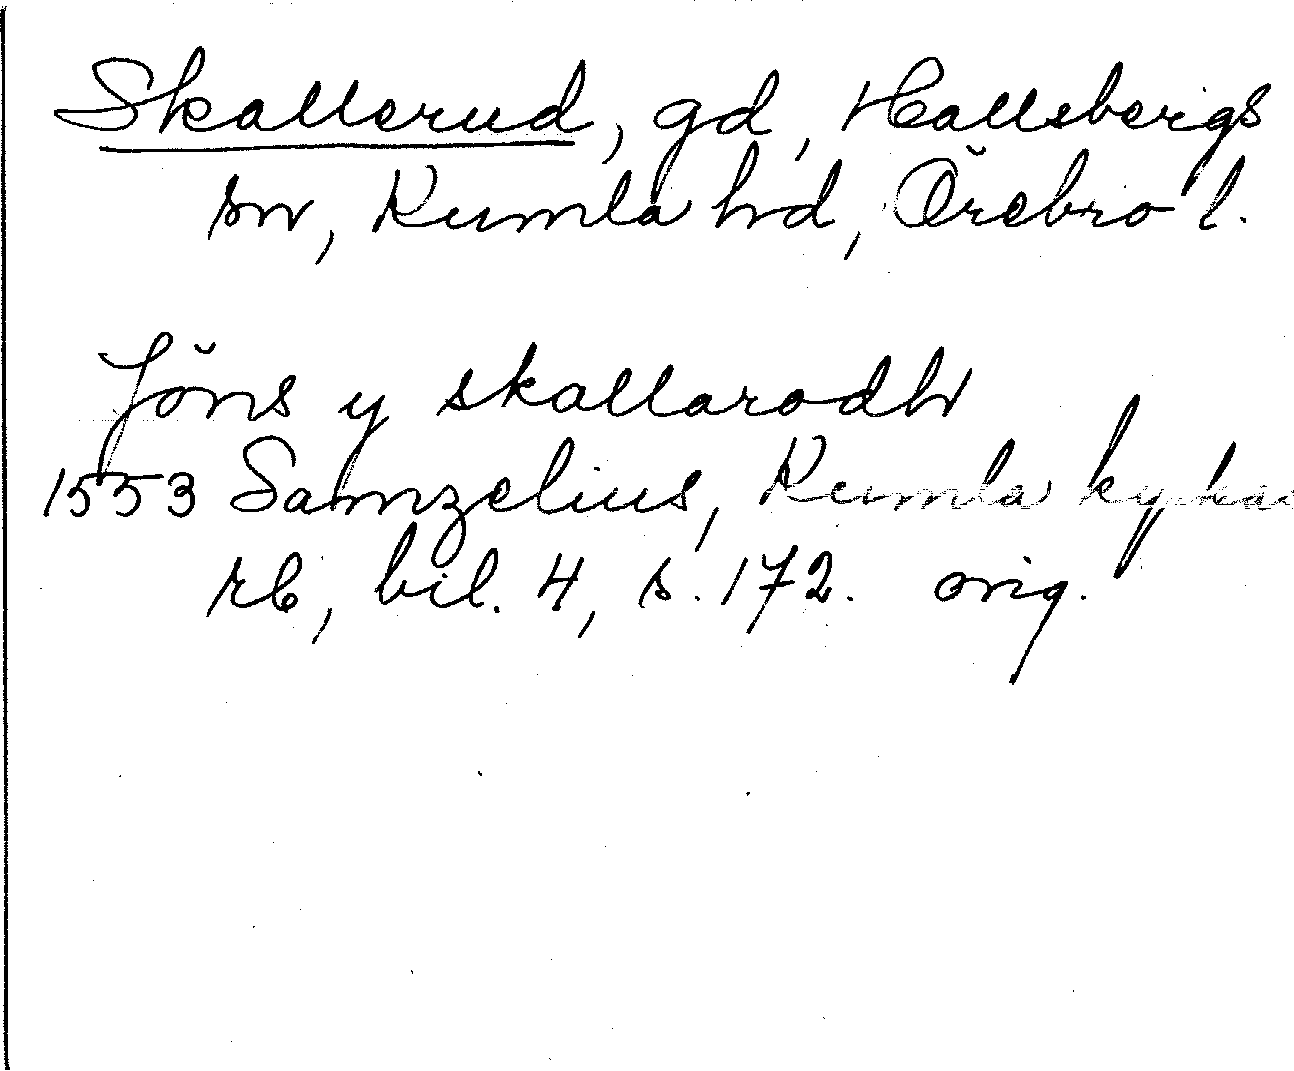 Skallerud, gd, Hallsbergs
sn, Kumla hd, Örebro l.
Jöns y skallarodh
1553 Samzelius, Kumla kyrkas
rb, bil. 4, s. 172. orig.